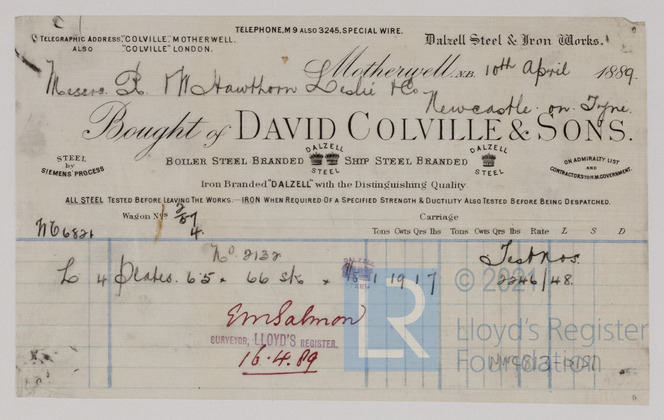 TELEPHONE, M 9 ALSO 3245, SPECIAL WIRE.
TELEGRAPHIC ADDRESS, "COLVILLE", MOTHERWELL.
ALSO "COLVILLE" LONDON.
Dalzell Steel & Iron Works.
Motherwell, N.B. 10th April 1889.
Messrs. R. & W Hawthorn Leslie & Co
Newcastle on Tyne.
Bought of DAVID COLVILLE & SONS.
STEEL by SIEMENS' PROCESS
BOILER STEEL BRANDED DALZELL STEEL SHIP STEEL BRANDED DALZELL STEEL
ON ADMIRALTY LIST AND CONTRACTORS TO H.M. GOVERNMENT.
Iron Branded "DALZELL" with the Distinguishing Quality
ALL STEEL TESTED BEFORE LEAVING THE WORKS. — IRON WHEN REQUIRED OF A SPECIFIED STRENGTH & DUCTILITY ALSO TESTED BEFORE BEING DESPATCHED.
Wagon Nos Carriage
4.
Tons Cwts Qrs lbs Tons Cwts Qrs lbs Rate L S D
6821
No. 2132
Test Nos.
4 plates. 6.5 × 66 sk × 1 19 1 7
2246/48.
E M Salmon
SURVEYOR, LLOYD'S REGISTER.
16.4.89
LR
© 2021
Lloyd's Register
Foundation